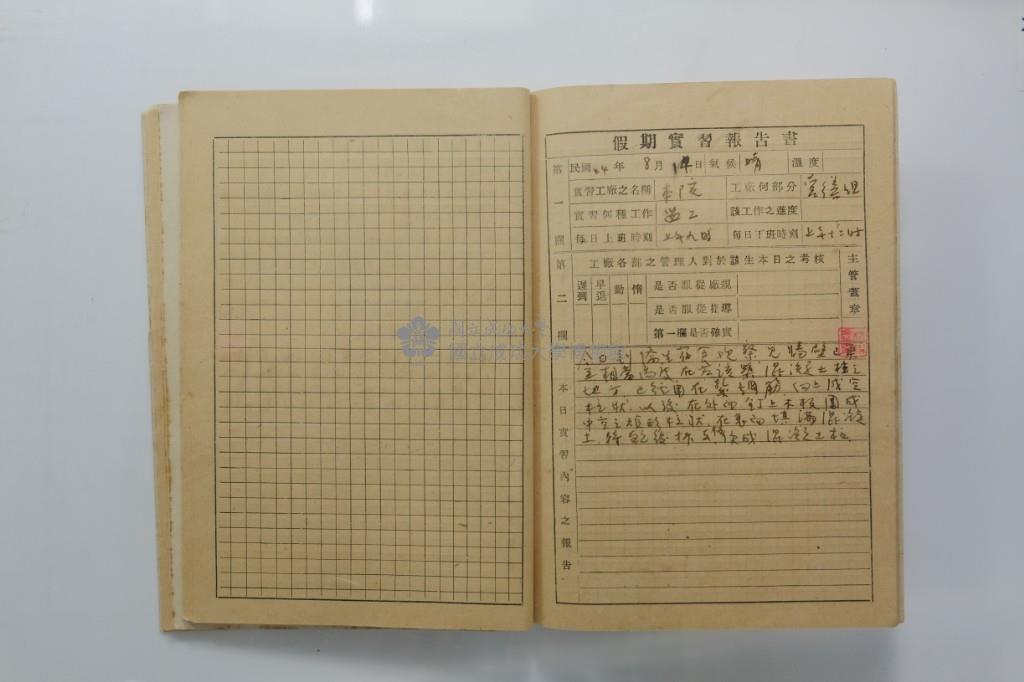 假期實習報告書
第一欄
民國44年 8月 14日 氣候 晴 溫度
實習工廠之名稱 本院 工廠何部分 營繕組
實習何種工作 監工 該工作之進度
每日上班時刻 上午九時 每日下班時刻 上午十二時
第二欄
工廠各部之管理人對於該生本日之考核
遲到 早退 勤 惰 是否服從廠規
是否服從指導
第一欄是否確實
主管蓋章
國立成功大學
國立成功大學博物館
本日實習內容之報告
今日到 生宿舍觀察見牆壁已
高度 在應該築混凝土柱之
地方 已經 在紮鋼筋 向上成空
柱狀 以後在外面釘上木板圍成
中空之 柱狀 在裏面填滿混凝
土 待乾後拆 成混凝土柱